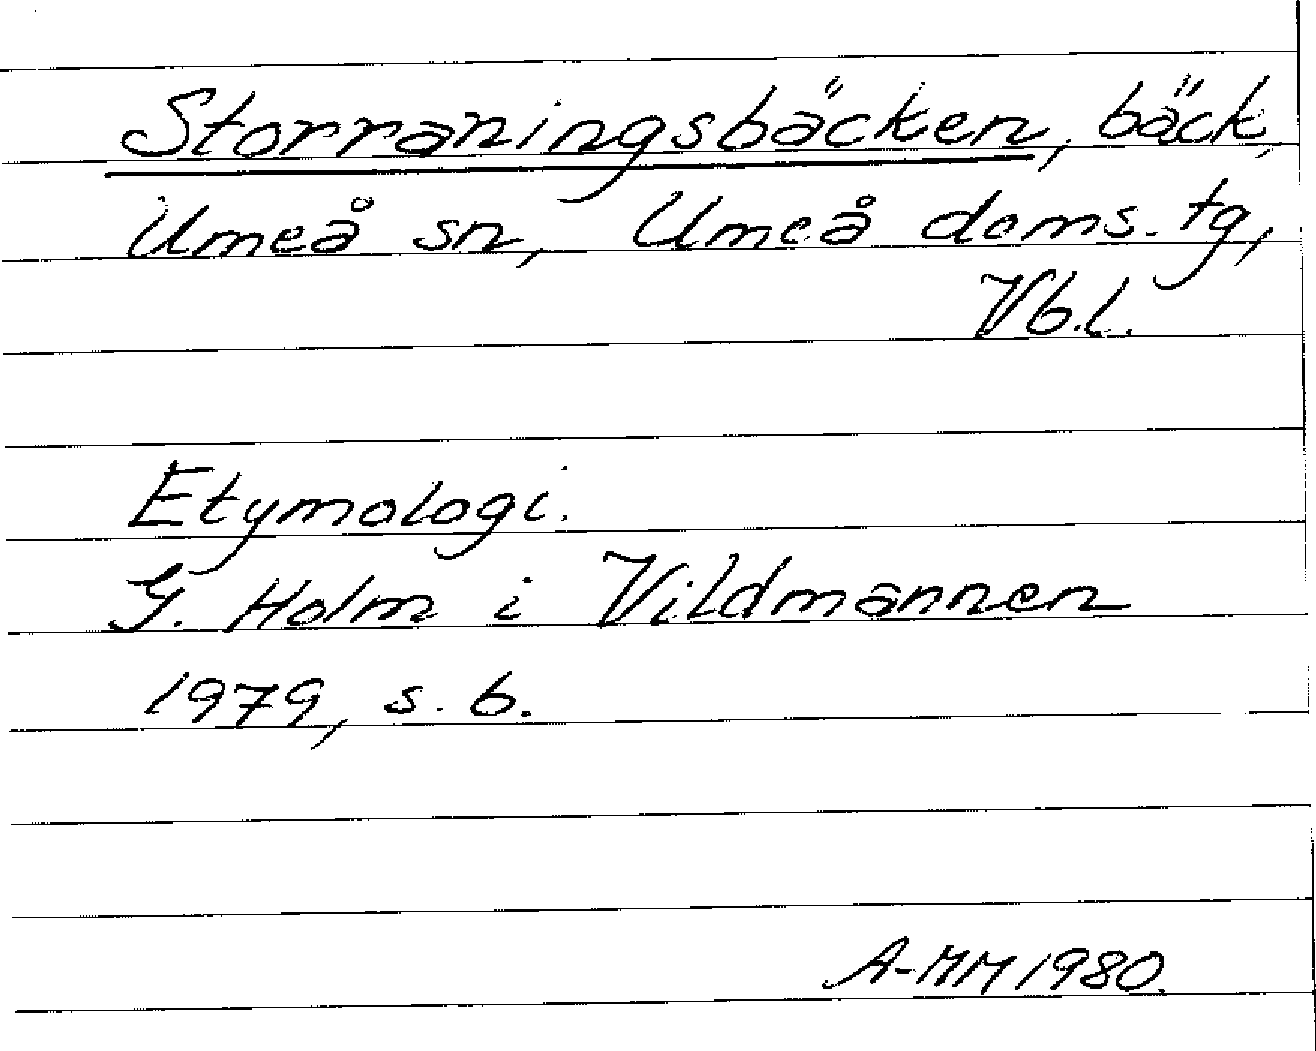 Storraningsbäcken, bäck,
Umeå sn, Umeå doms. tg,
Vb.l.
Etymologi.
G. Holm i Vildmannen
1979, s. 6.
A-MM 1980.